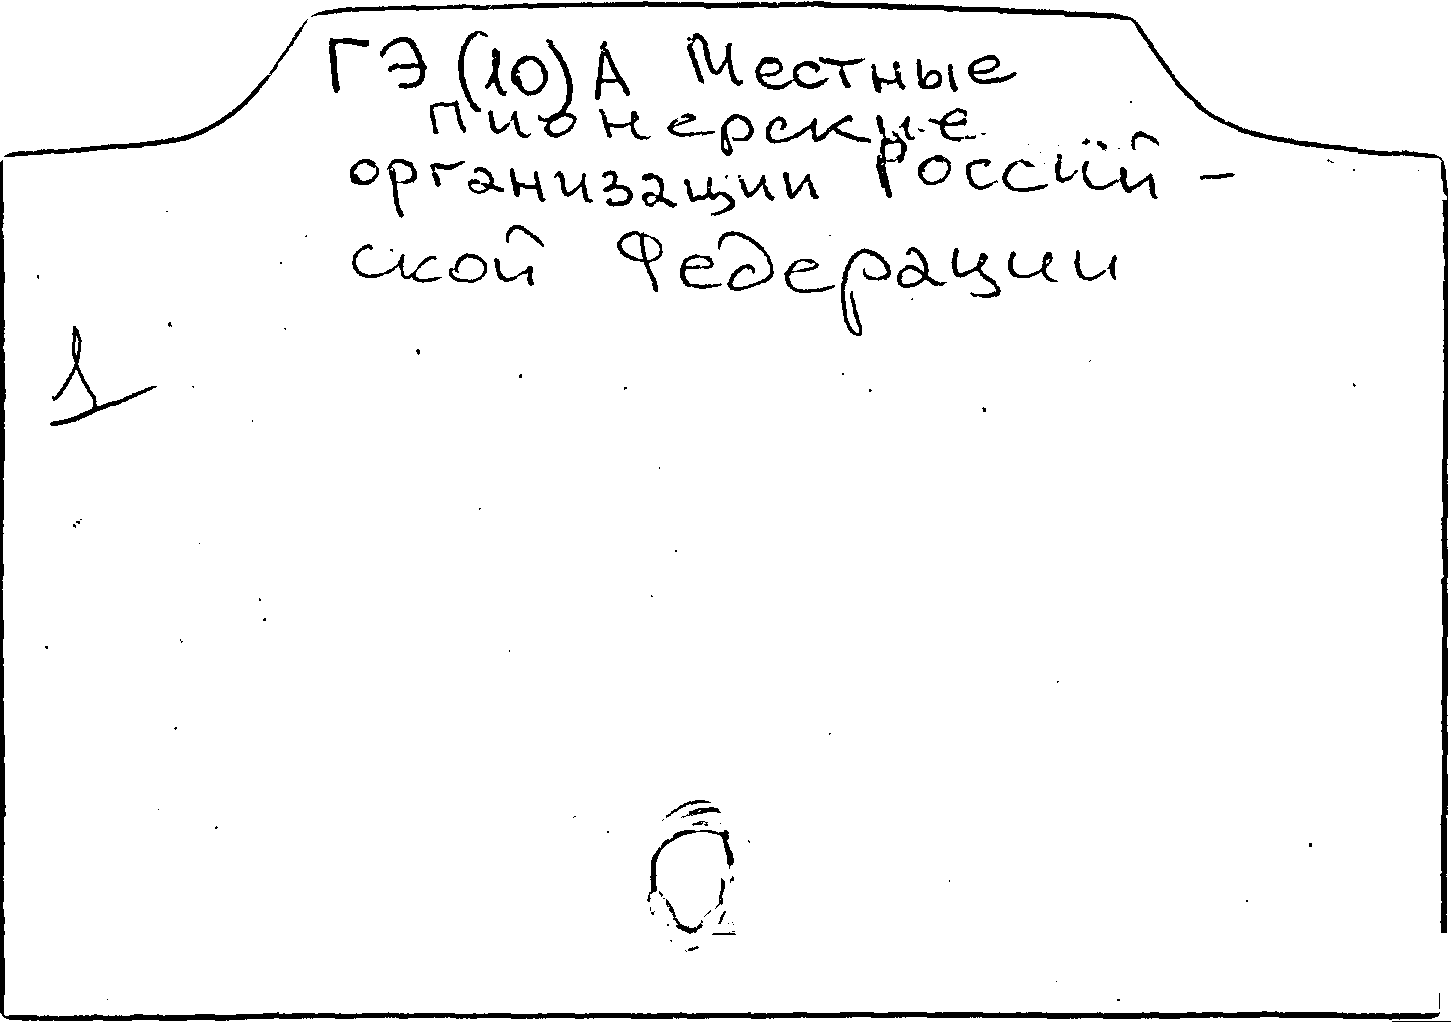 ГЭ (10) А Местные
пионерские
организации Россий -
ской Федерации
1